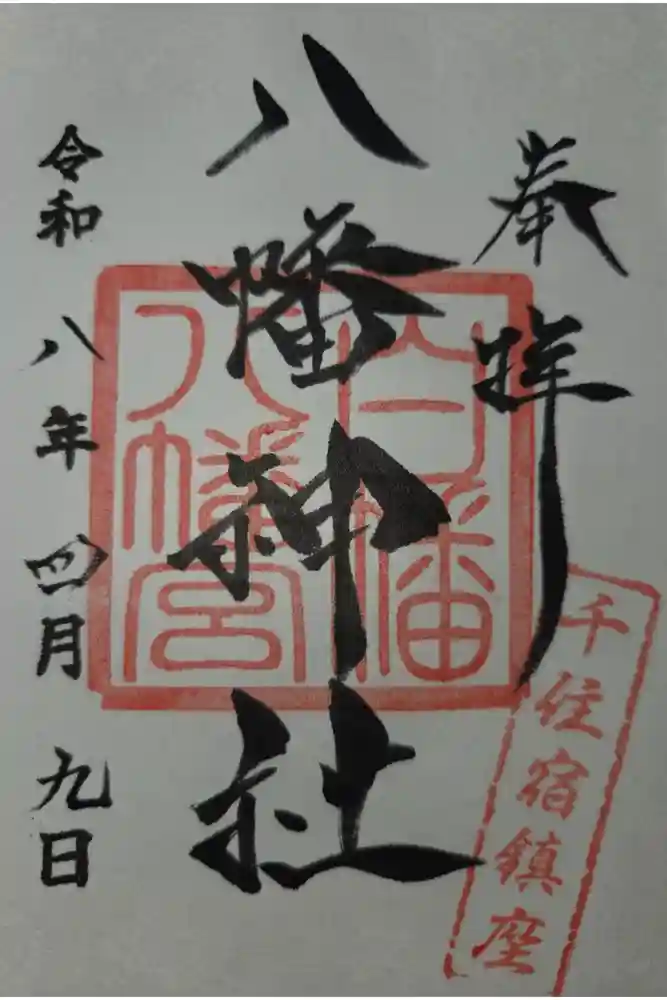 奉拝
八幡神社
令和八年四月九日
八幡宮
千住宿鎮座